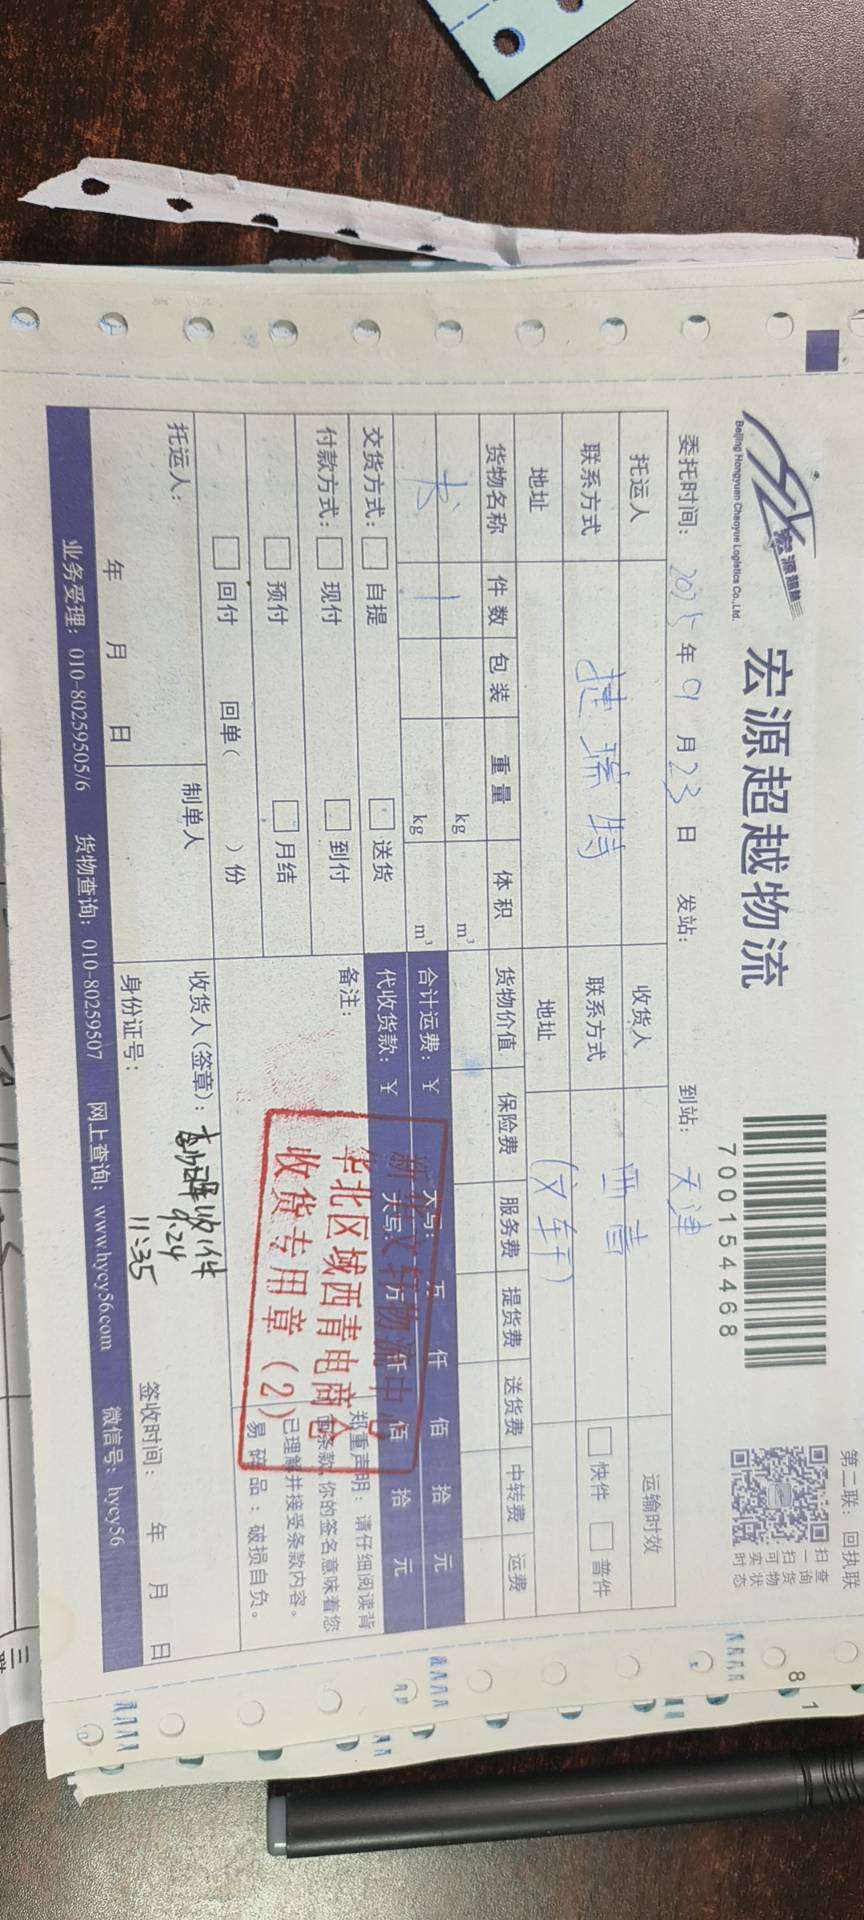 第二联：回执联
宏源超越
Beijing Hongyuan Chaoyue Logistics Co.,Ltd.
宏源超越物流
700154468
扫一扫可实时
查询货物状态
委托时间：2025年9月23日 发站： 到站：天津
托运人 收货人 运输时效
联系方式 捷瑞特 联系方式 西青 快件 普件
地址 地址 (文轩)
货物名称 件数 包装 重量 体积 货物价值 保险费 服务费 提货费 送货费 中转费 运费
书 1 kg m³
kg m³
合计运费：¥ 大写： 万 仟 佰 拾 元
交货方式： 自提 送货 代收货款：¥ 大写： 万 仟 佰 拾 元
付款方式： 现付 到付 备注：
预付 月结
回付 回单( )份
郑重声明：请仔细阅读背
面条款，你的签名意味着您
已理解并接受条款内容。
易碎品：破损自负。
新华文轩物流中心
华北区域西青电商仓
收货专用章(2)
托运人： 制单人 收货人(签章)： 收1件
9.24
11:35
年 月 日 身份证号： 签收时间： 年 月 日
业务受理：010-80259505/6 货物查询：010-80259507 网上查询：www.hycy56.com 微信号：hycy56